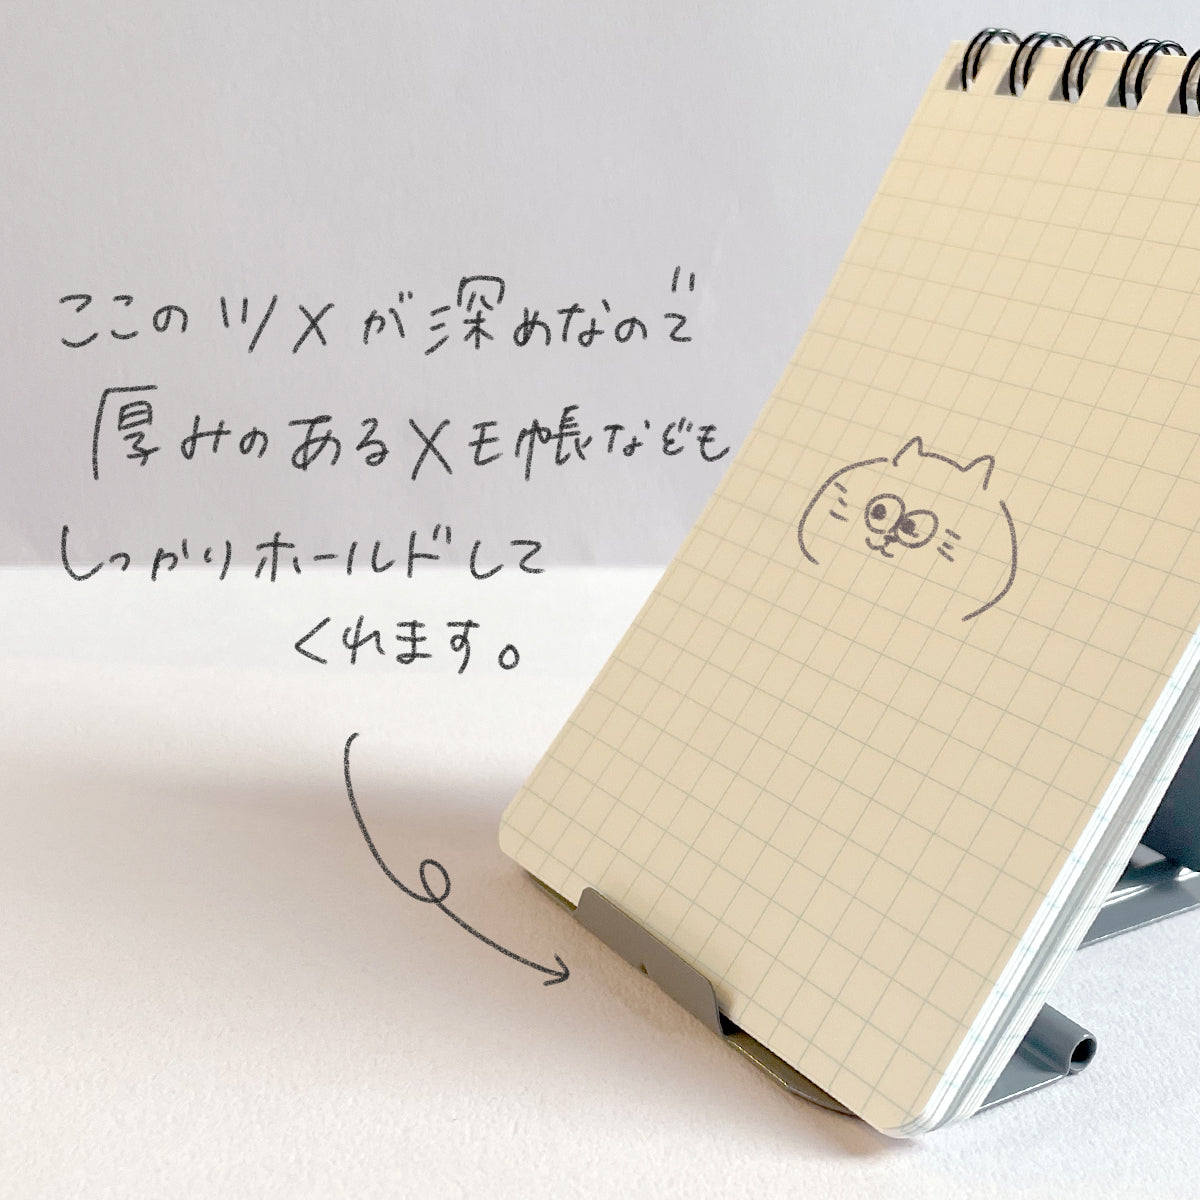 ここのツメが深めなので
厚みのあるメモ帳なども
しっかりホールドして
くれます。